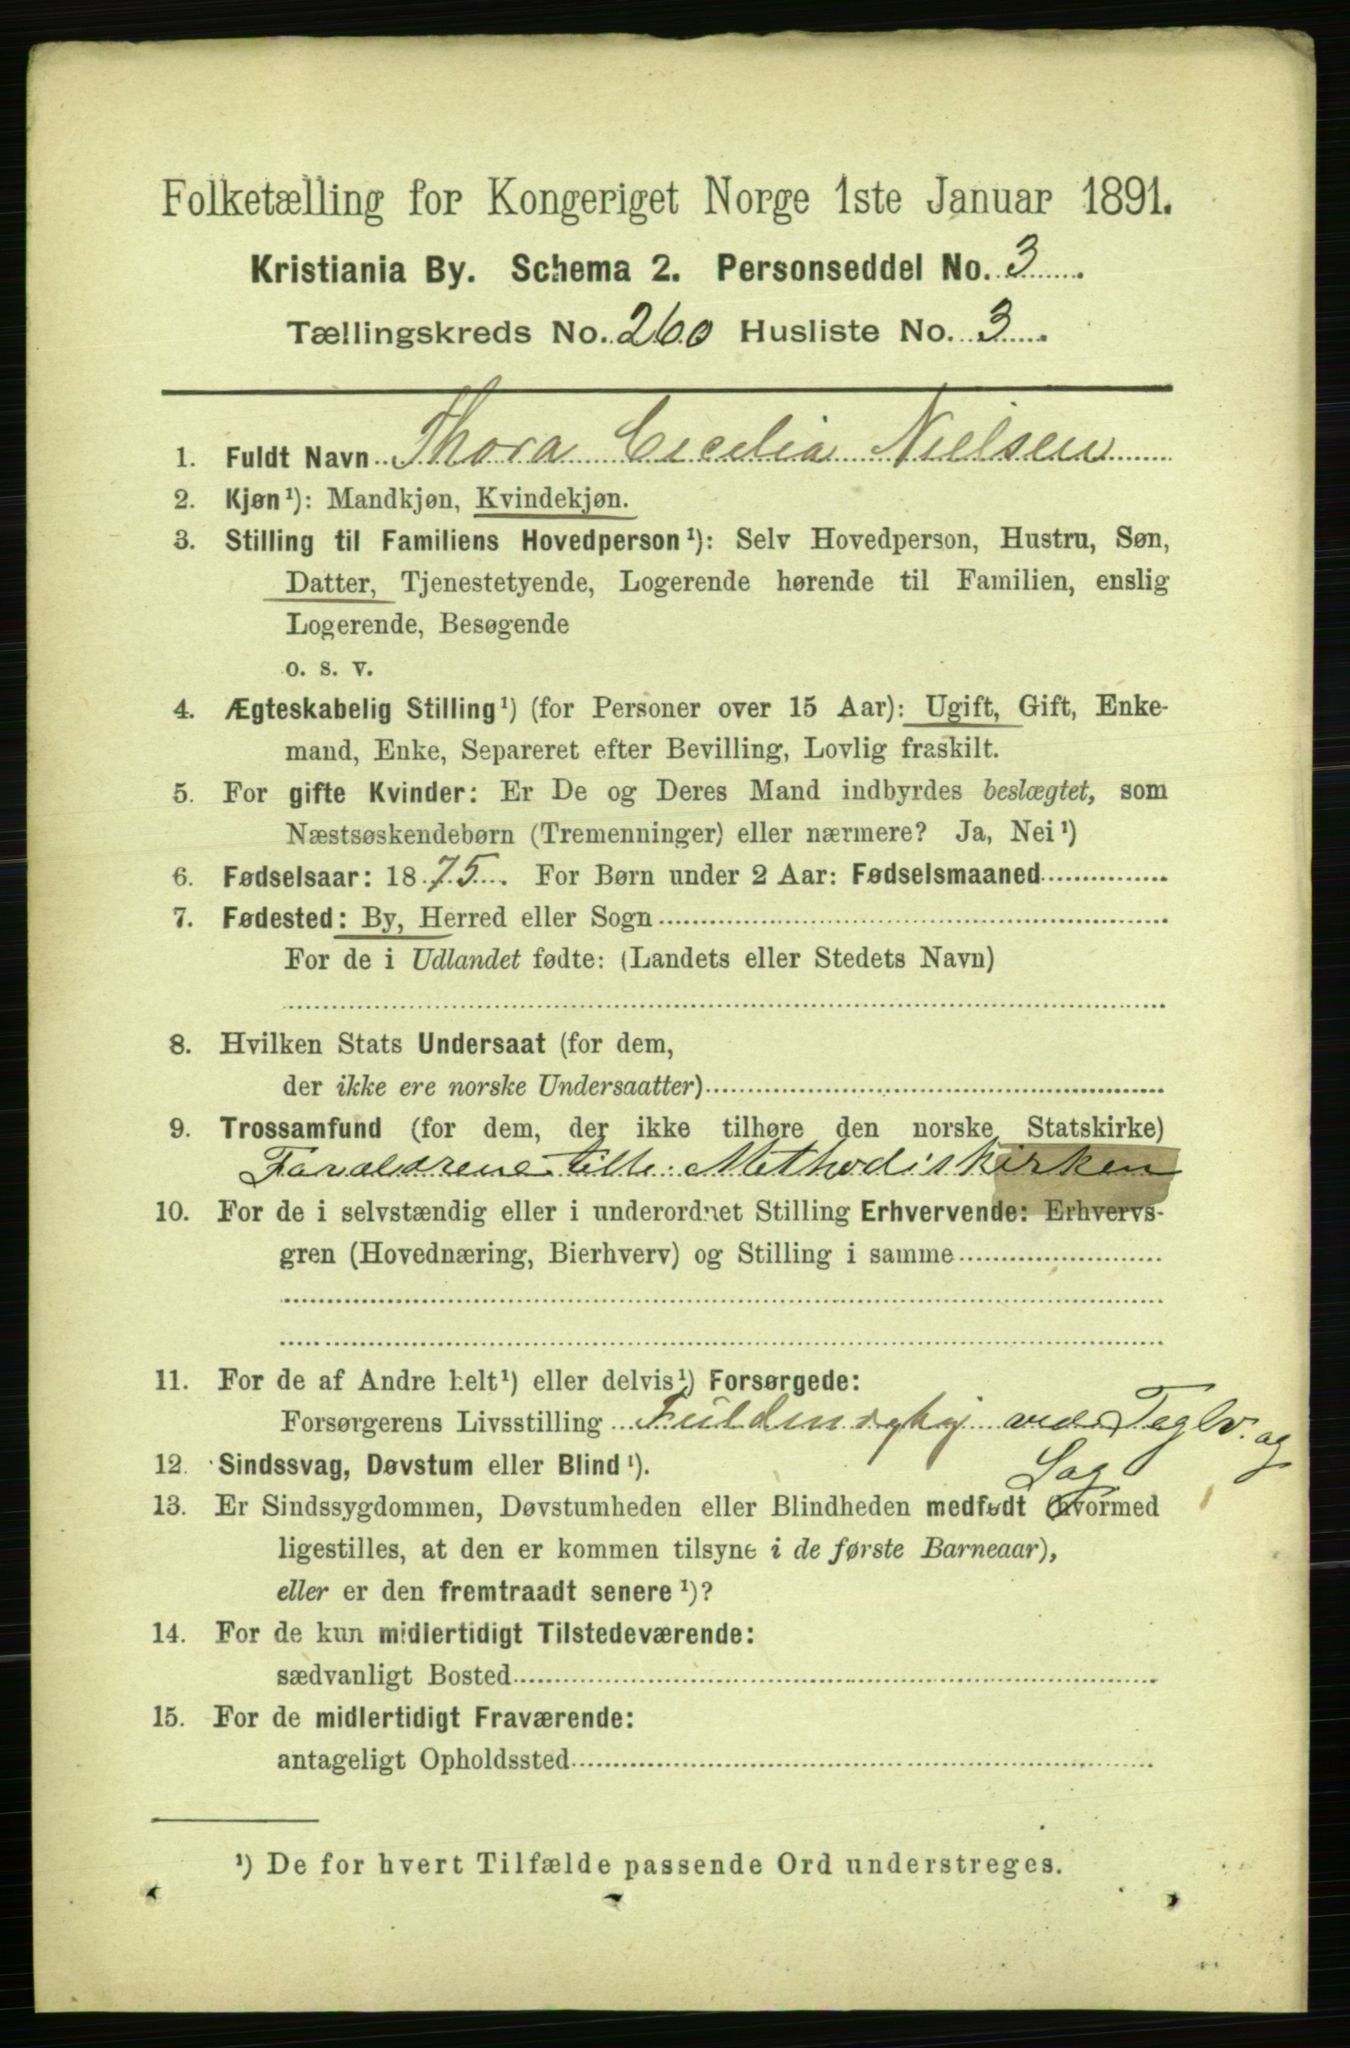 Folketælling for Kongeriget Norge 1ste Januar 1891.
Kristiania By. Schema 2. Personseddel No. 3
Tællingskreds No. 260 Husliste No. 3
1. Fuldt Navn Thora Cecelia Nielsen
2. Kjøn¹): Mandkjøn, Kvindekjøn.
3. Stilling til Familiens Hovedperson¹): Selv Hovedperson, Hustru, Søn,
Datter, Tjenestetyende, Logerende hørende til Familien, enslig
Logerende, Besøgende
o. s. v.
4. Ægteskabelig Stilling¹) (for Personer over 15 Aar): Ugift, Gift, Enke-
mand, Enke, Separeret efter Bevilling, Lovlig fraskilt.
5. For gifte Kvinder: Er De og Deres Mand indbyrdes beslægtet, som
Næstsøskendebørn (Tremenninger) eller nærmere? Ja, Nei¹)
6. Fødselsaar: 1875. For Børn under 2 Aar: Fødselsmaaned
7. Fødested: By, Herred eller Sogn
For de i Udlandet fødte: (Landets eller Stedets Navn)
8. Hvilken Stats Undersaat (for dem,
der ikke ere norske Undersaatter)
9. Trossamfund (for dem, der ikke tilhøre den norske Statskirke)
Forældrene tilh. Methodiskirken
10. For de i selvstændig eller i underordnet Stilling Erhvervende: Erhvervs-
gren (Hovednæring, Bierhverv) og Stilling i samme
11. For de af Andre helt¹) eller delvis¹) Forsørgede:
Forsørgerens Livsstilling ved Teglv. og
Sag
12. Sindssvag, Døvstum eller Blind¹).
13. Er Sindssygdommen, Døvstumheden eller Blindheden medfødt (hvormed
ligestilles, at den er kommen tilsyne i de første Barneaar),
eller er den fremtraadt senere¹)?
14. For de kun midlertidigt Tilstedeværende:
sædvanligt Bosted
15. For de midlertidigt Fraværende:
antageligt Opholdssted
¹) De for hvert Tilfælde passende Ord understreges.